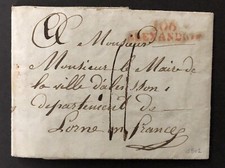 106
ALEXANDRIE
A Monsieur
Monsieur le Maire de
la ville d'alensson
departement de
Lorne en france